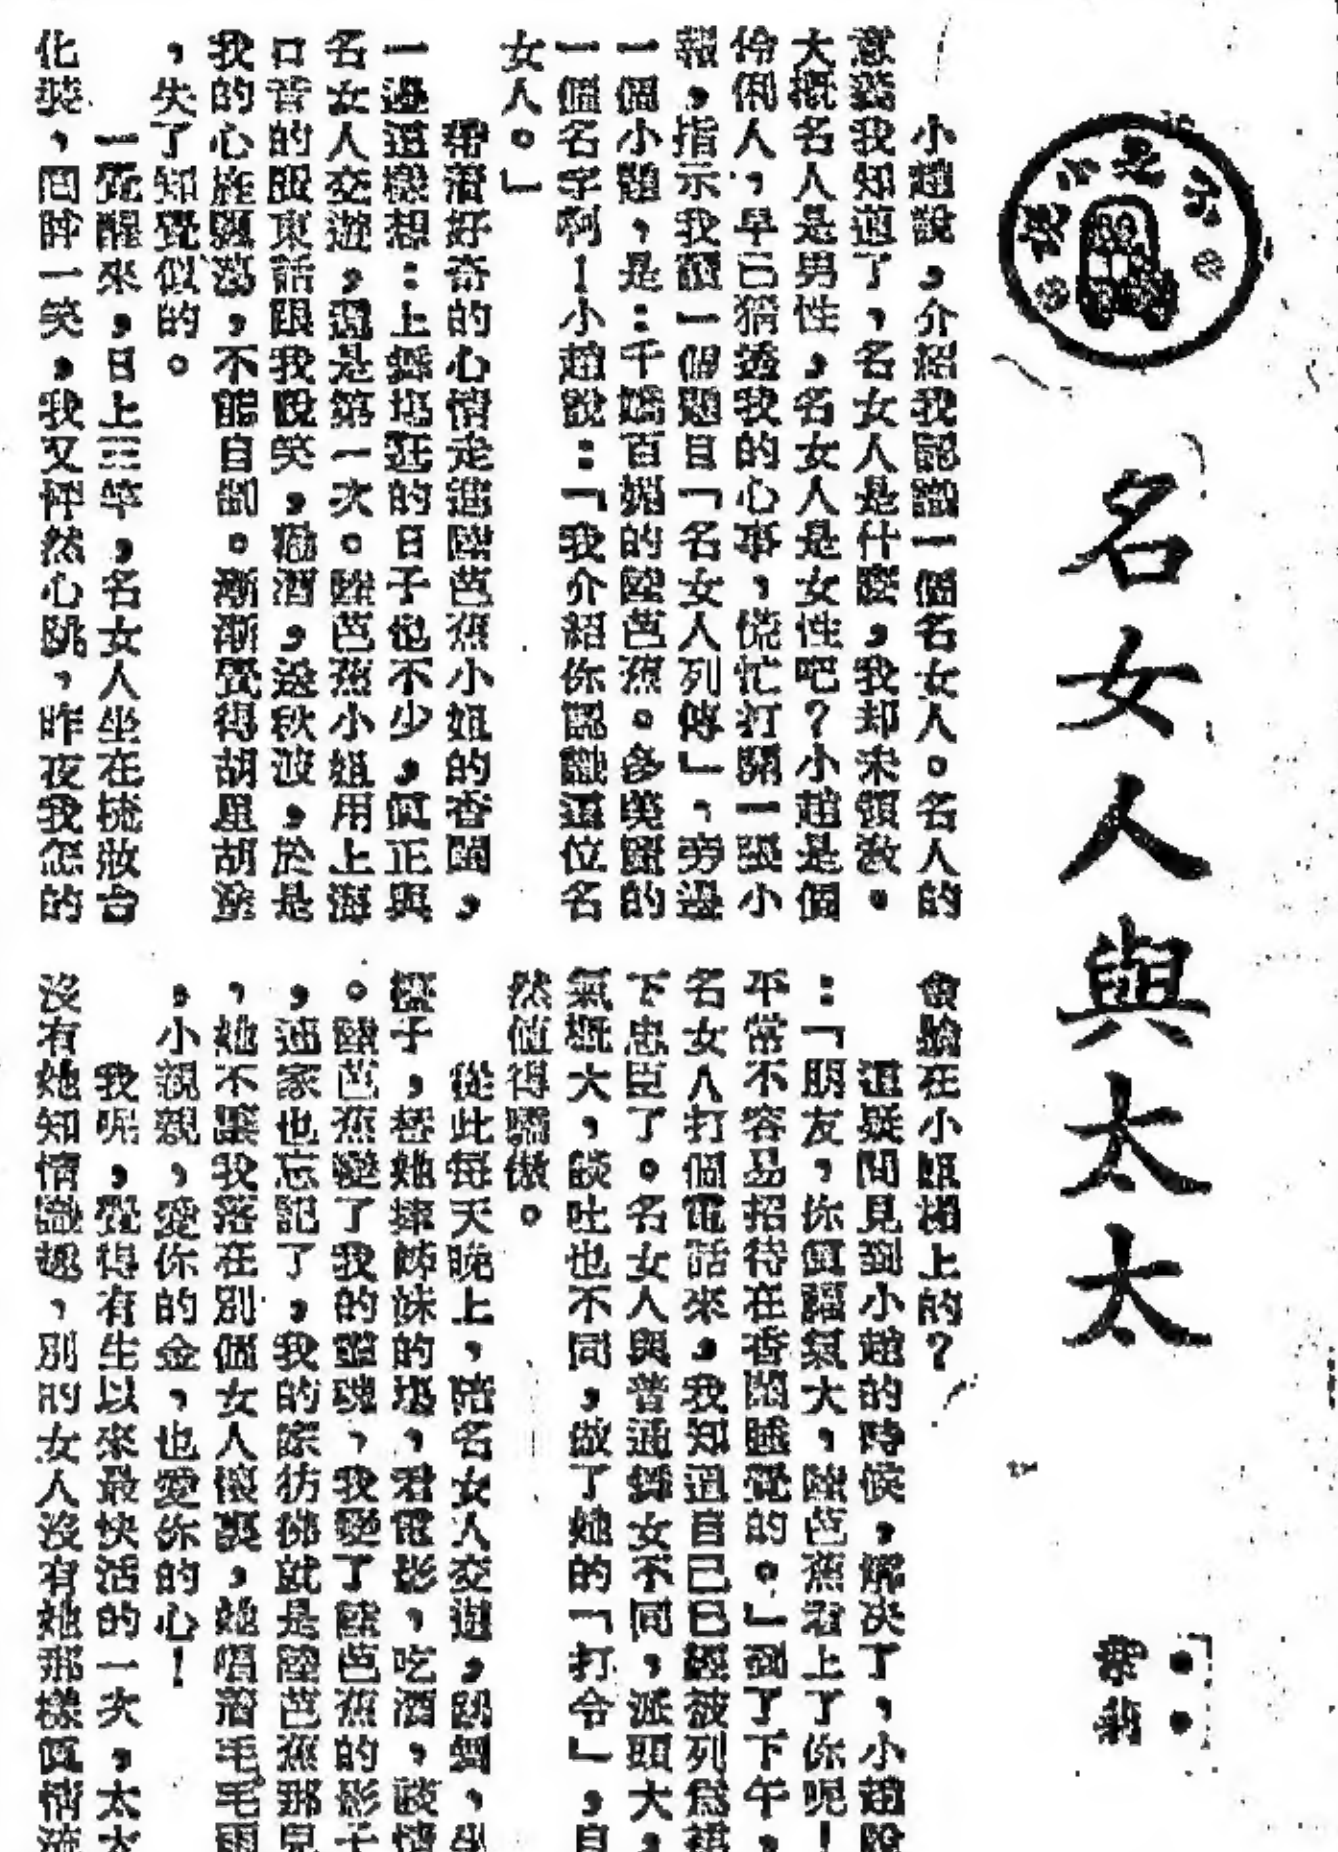 名女人與太太
小趙說，介紹我認識一個名女人。名人的
意義我知道了，名女人是什麼，我却未領教。
大概名人是男性，名女人是女性吧？小趙是個
伶俐人，早已猜透我的心事，慌忙打開一張小
報，指示我讀一個題目「名女人列傳」，旁邊
一個小題，是：千嬌百媚的陸芭蕉。多美麗的
一個名字啊！小趙說：「我介紹你認識這位名
女人。」
帶着好奇的心情走進陸芭蕉小姐的香閨，
一邊這樣想：上舞場逛的日子也不少，眞正與
名女人交遊，還是第一次。陸芭蕉小姐用上海
口音的東話跟我說笑，酒，送秋波，於是
我的心旌飄蕩，不能自制。漸漸覺得胡里胡塗
，失了知覺似的。
一覺醒來，日上三竿，名女人坐在梳妝台
化裝，回眸一笑，我又怦然心跳，昨夜我怎的
會躺在小姐榻上的？
這疑問見到小趙的時候，解决了，小趙說
：「朋友，你眞福氣大，陸芭蕉看上了你呢！
平常不容易招待在香閨睡覺的。」到了下午，
名女人打個電話來，我知道自己已經被列爲裙
下忠臣了。名女人與普通舞女不同，派頭大，
氣概大，談吐也不同，做了她的「打令」，自
然値得驕傲。
從此每天晚上，陪名女人交遊，跳舞，坐
檯子，替她捧姊妹的場，看電影，吃酒，談情
。陸芭蕉變了我的靈魂，我變了陸芭蕉的影子
，連家也忘記了，我的家彷彿就是陸芭蕉那兒
，她不讓我落在別個女人懷裏，她唱着毛毛雨
，小親親，愛你的金，也愛你的心！
我呢，覺得有生以來最快活的一次，太太
沒有她知情識趣，別的女人沒有她那樣眞情流